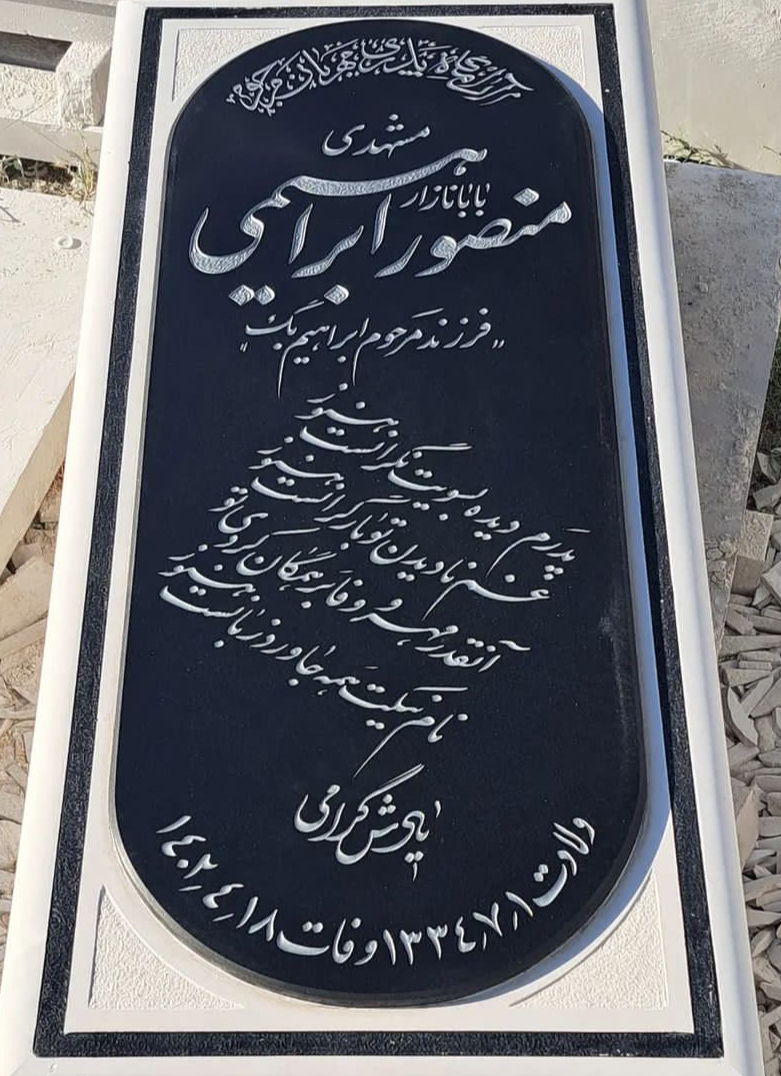 آرامگاه پدری مهربان مرحوم
مشهدی
بابانازار
منصور ابراهیمی
"فرزند مرحوم ابراهیم بگ"
پدرم دیده بسویت نگرانست هنوز
غم نادیدن تو بار گرانست هنوز
آنقدر مهر و وفا بر همگان کردی تو
نام نیکیت همه جا ورد زبانست هنوز
یادش گرامی
ولادت ۱۳۳۴٫۷٫۱ وفات ۱۴۰۲٫۴٫۱۸